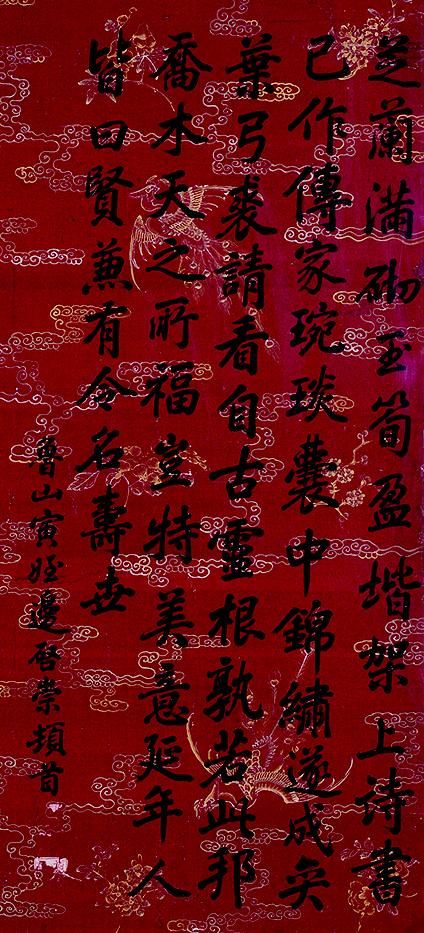 芝蘭滿砌玉筍盈堦架上詩書
已作傳家琬琰囊中錦繡遂成奕
葉弓裘請看自古靈根孰若此邦
喬木天之所福豈特美意延年人
皆曰賢兼有令名壽世
魯山寅姪邊啓崇頓首